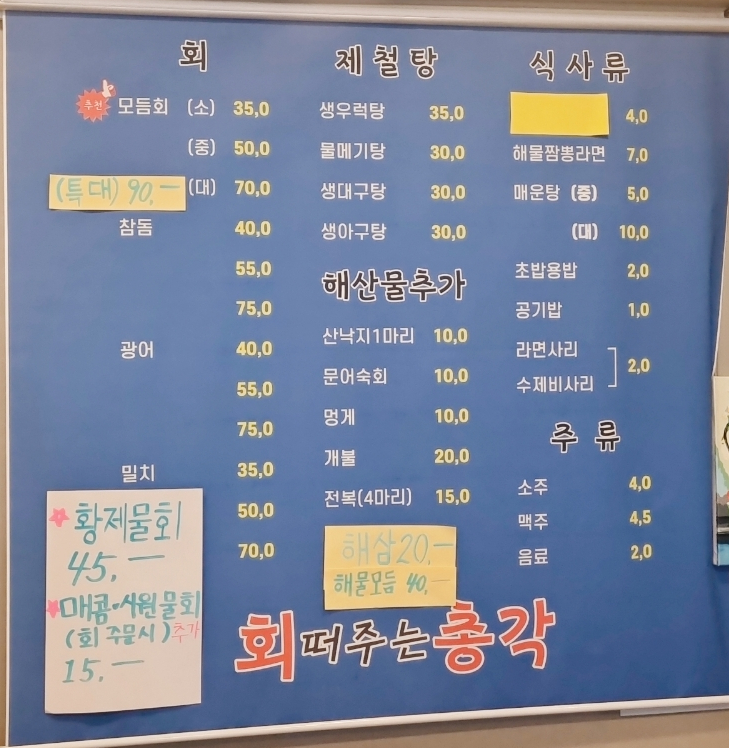 회
추천 모듬회 (소) 35,0
(중) 50,0
(특대) 90,— (대) 70,0
참돔 40,0
55,0
75,0
광어 40,0
55,0
75,0
밀치 35,0
50,0
70,0
황제물회
45.—
매콤·시원물회
(회 주문시) 추가
15.—
제철탕
생우럭탕 35,0
물메기탕 30,0
생대구탕 30,0
생아구탕 30,0
해산물추가
산낙지1마리 10,0
문어숙회 10,0
멍게 10,0
개불 20,0
전복(4마리) 15,0
해삼 20,—
해물모듬 40,—
식사류
4,0
해물짬뽕라면 7,0
매운탕 (중) 5,0
(대) 10,0
초밥용밥 2,0
공기밥 1,0
라면사리
수제비사리 2,0
주류
소주 4,0
맥주 4,5
음료 2,0
회떠주는총각